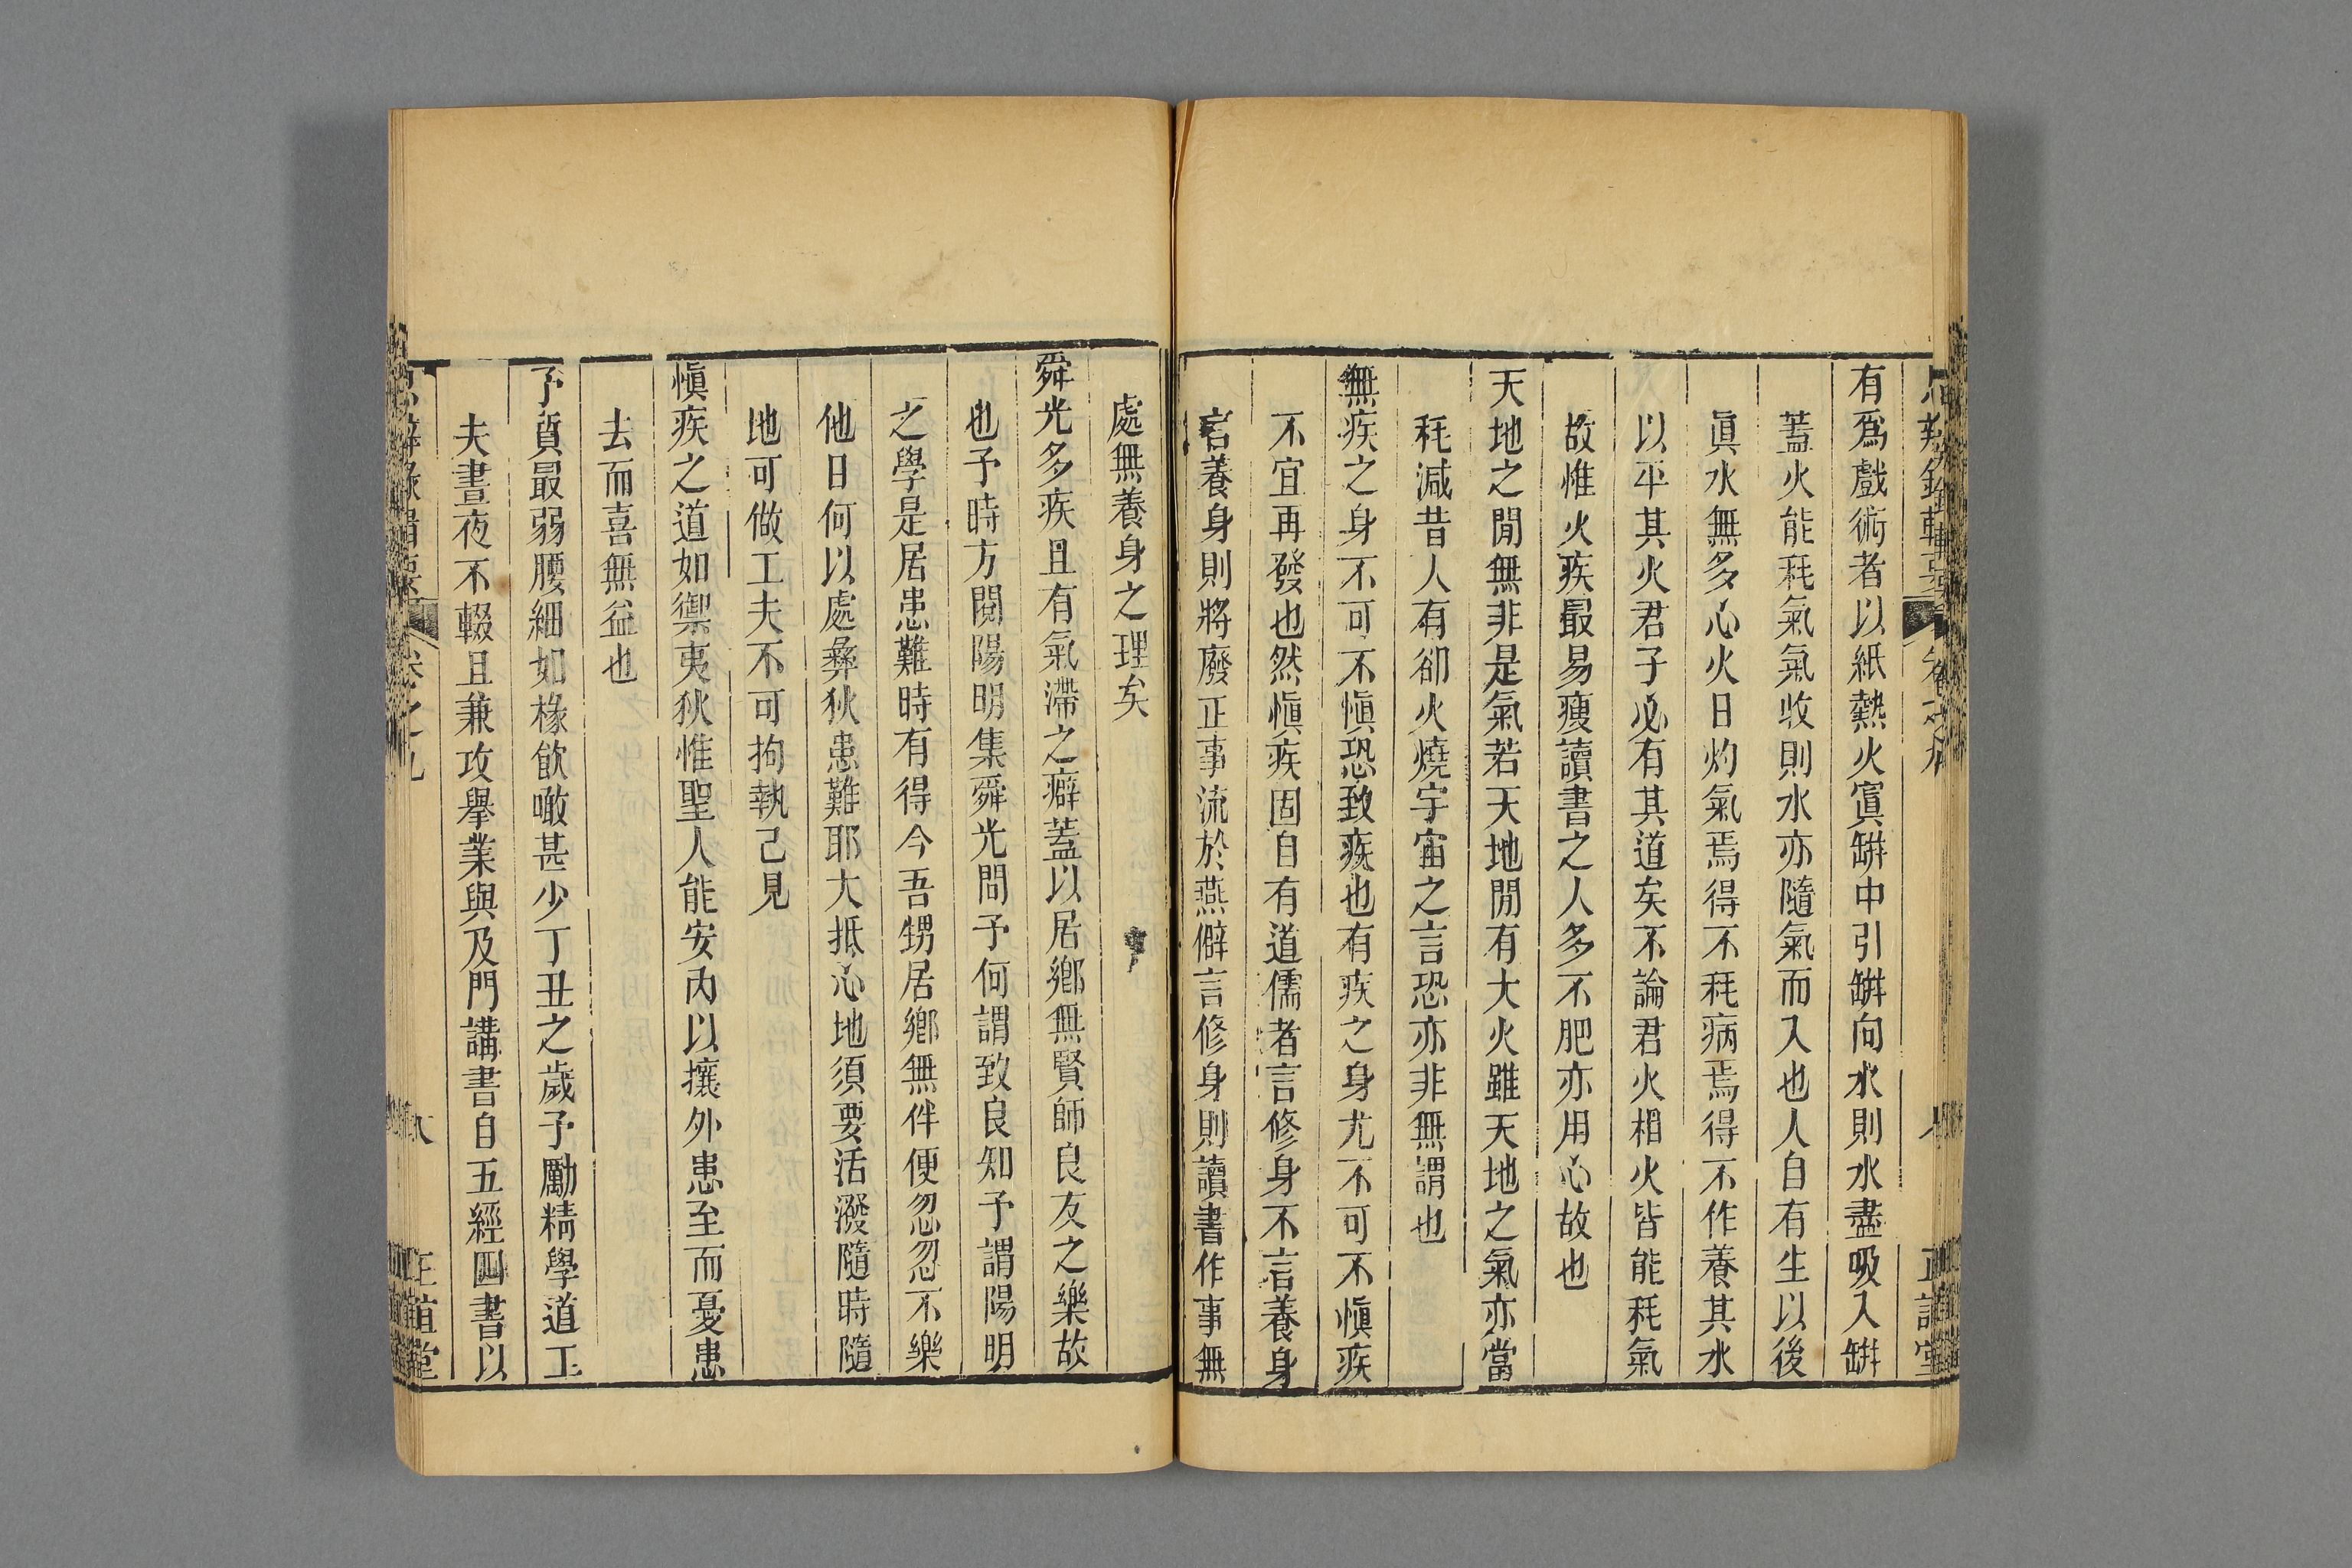 有爲戲術者以紙熱火寘缾中引缾向水則水盡吸入缾
蓋火能秏氣氣收則水亦隨氣而入也人自有生以後
眞水無多心火日灼氣焉得不秏病焉得不作養其水
以平其火君子必有其道矣不論君火相火皆能秏氣
故惟火疾最易瘦讀書之人多不肥亦用心故也
天地之閒無非是氣若天地閒有大火雖天地之氣亦當
秏減昔人有卻火燒宇宙之言恐亦非無謂也
無疾之身不可不愼恐致疾也有疾之身尤不可不愼疾
不宜再發也然愼疾固自有道儒者言修身不言養身
言養身則將廢正事流於燕僻言修身則讀書作事無
處無養身之理矣
舜光多疾且有氣滯之癖蓋以居鄕無賢師良友之樂故
也予時方閱陽明集舜光問予何謂致良知予謂陽明
之學是居患難時有得今吾甥居鄕無伴便忽忽不樂
他日何以處彝狄患難耶大抵心地須要活潑隨時隨
地可做工夫不可拘執己見
愼疾之道如禦夷狄惟聖人能安內以攘外患至而憂患
去而喜無益也
予質最弱腰細如椽飮噉甚少丁丑之歲予勵精學道工
夫晝夜不輟且兼攻舉業與及門講書自五經四書以
卷之九
八
正誼堂